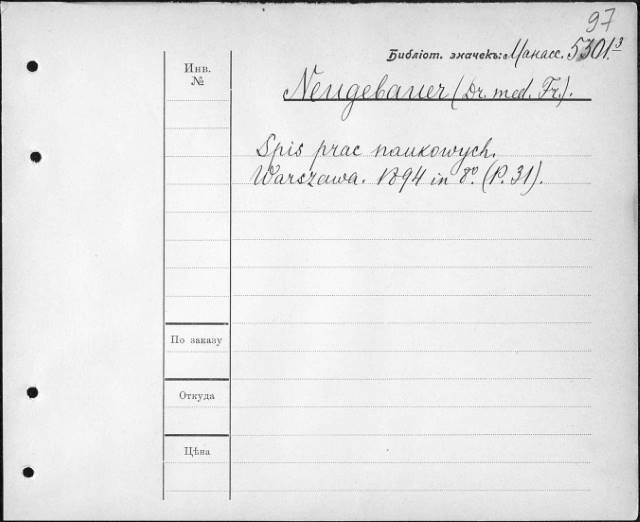 97
Библіот. значекъ: Манасс. 5301.³
Инв.
№
Neugebauer (Dr. med. Fr.).
Spis prac naukowych.
Warszawa. 1894 in 8º. (P. 31).
По заказу
Откуда
Цѣна